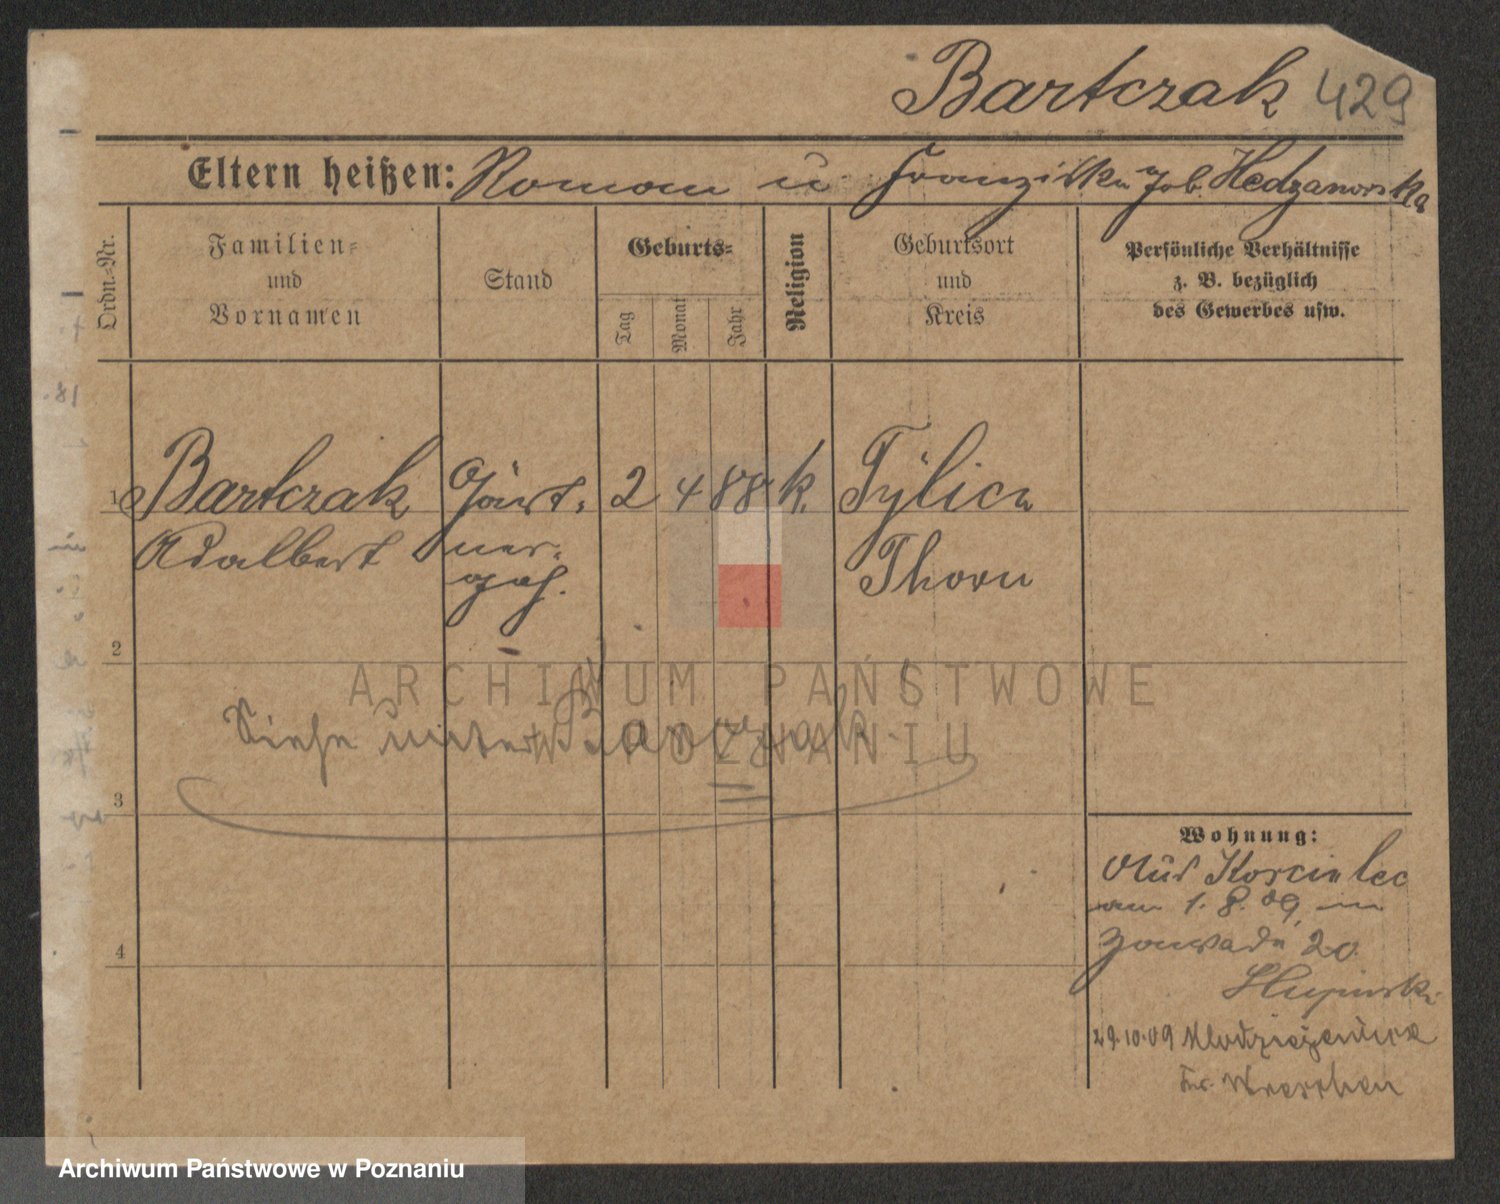 Bartczak 429
Eltern heißen: Roman u Franziska geb. Hedzanowska
Ordn.-Nr.
Familien-
und
Vornamen
Stand
Geburts-
Tag
Monat
Jahr
Religion
Geburtsort
und
Kreis
Persönliche Verhältnisse
z. B. bezüglich
des Gewerbes usw.
1 Bartczak Gärt- 2 4 88 k. Tylice
Adalbert ner- Thorn
geh.
2
ARCHIWUM PAŃSTWOWE
W POZNANIU
Siehe unter
3
4
Wohnung:
Aus Koscielec
am 1. 8. 09 in
Zawade 20
29.10.09
Kr. Wreschen
Archiwum Państwowe w Poznaniu